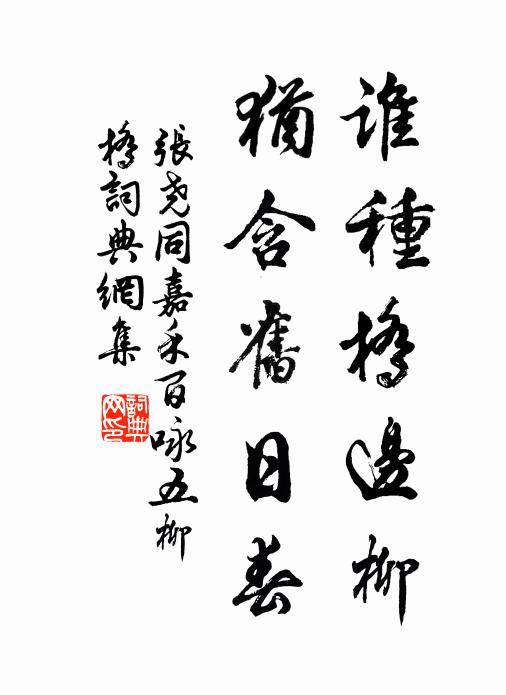 誰種橋邊柳
猶含舊日春
張堯同嘉禾百咏五柳
橋詞典網集
詞典网印